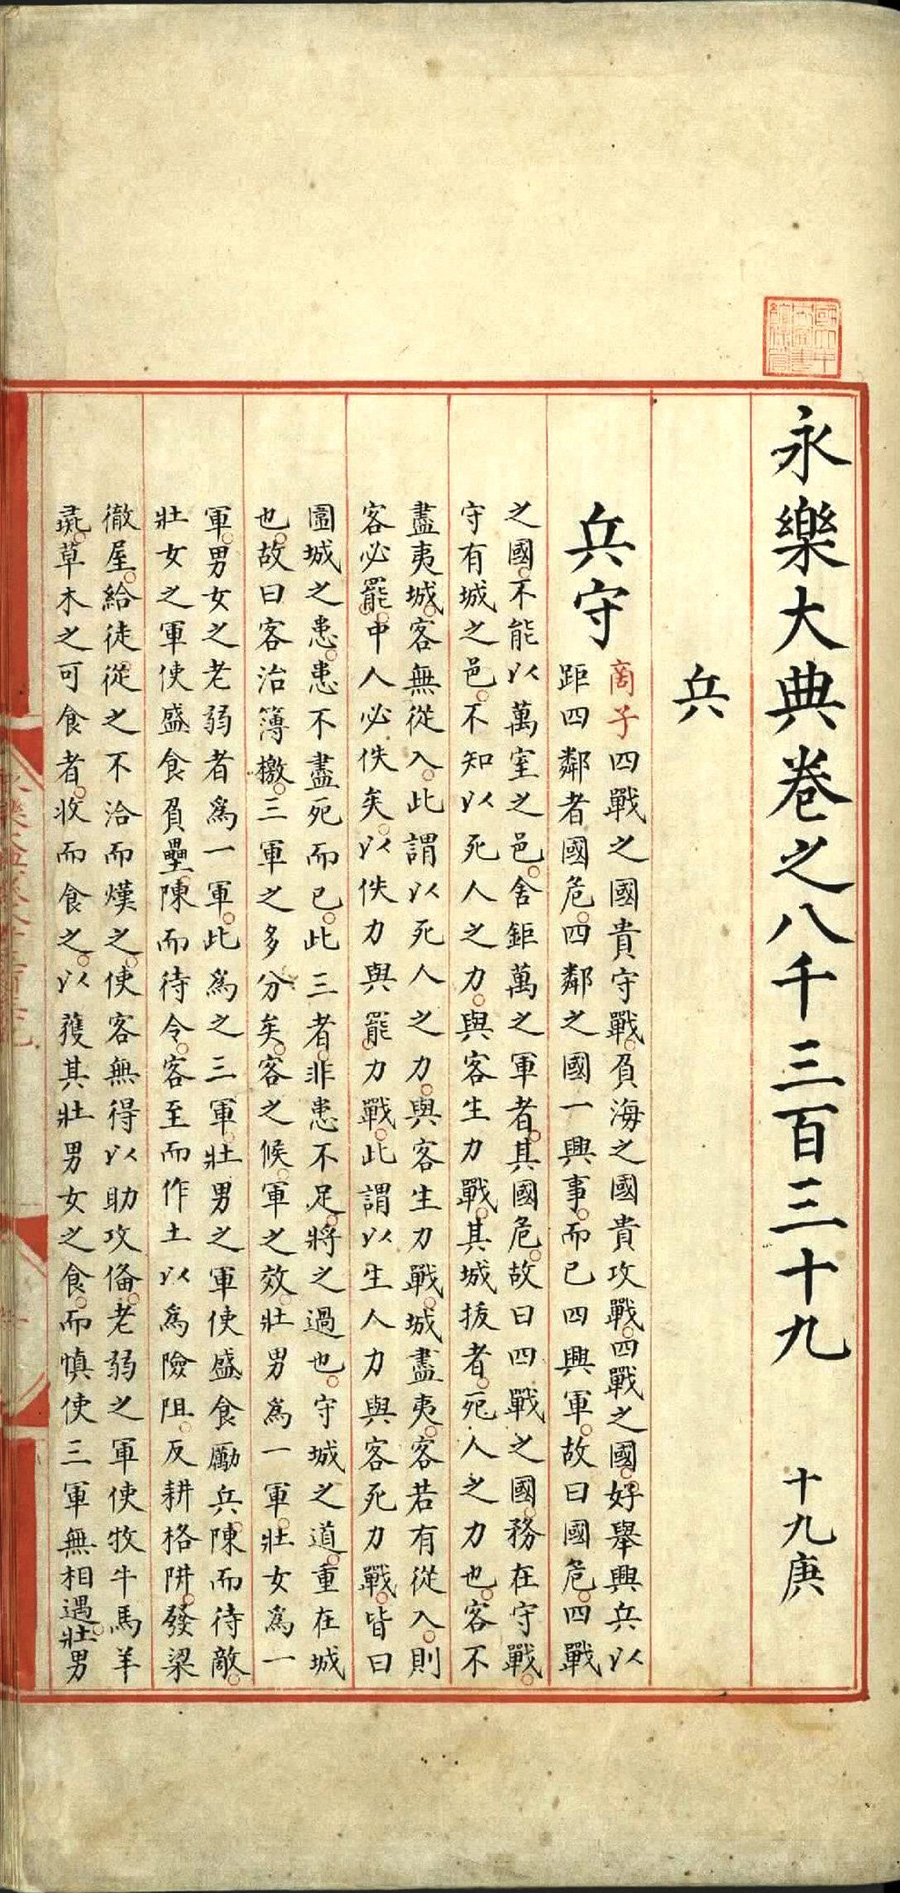 永樂大典卷之八千三百三十九 十九庚
兵
兵守
商子四戰之國貴守戰負海之國貴攻戰四戰之國好舉興兵以
距四鄰者國危四鄰之國一興事而已四興軍故曰國危四戰
之國不能以萬室之邑舍鉅萬之軍者其國危故曰四戰之國務在守戰
守有城之邑不知以死人之力與客生力戰其城拔者死人之力也客不
盡夷城客無從入此謂以死人之力與客生力戰城盡夷客若有從入則
客必罷中人必佚矣以佚力與罷力戰此謂以生人力與客死力戰皆曰
圍城之患患不盡死而已此三者非患不足將之過也守城之道重在城
也故曰客治簿檄三軍之多分矣客之候軍之效壯男為一軍壯女為一
軍男女之老弱者為一軍此為之三軍壯男之軍使盛食勵兵陳而待敵
壯女之軍使盛食負壘陳而待令客至而作土以為險阻反耕格阱發梁
徹屋給徒從之不洽而熯之使客無得以助攻俻老弱之軍使牧牛馬羊
彘草木之可食者收而食之以蒦其壯男女之食而慎使三軍無相過壯男